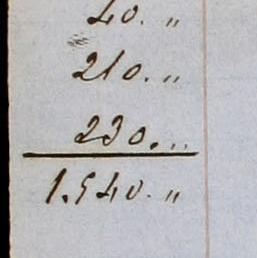 40. "
210. "
230. "
1.540. "